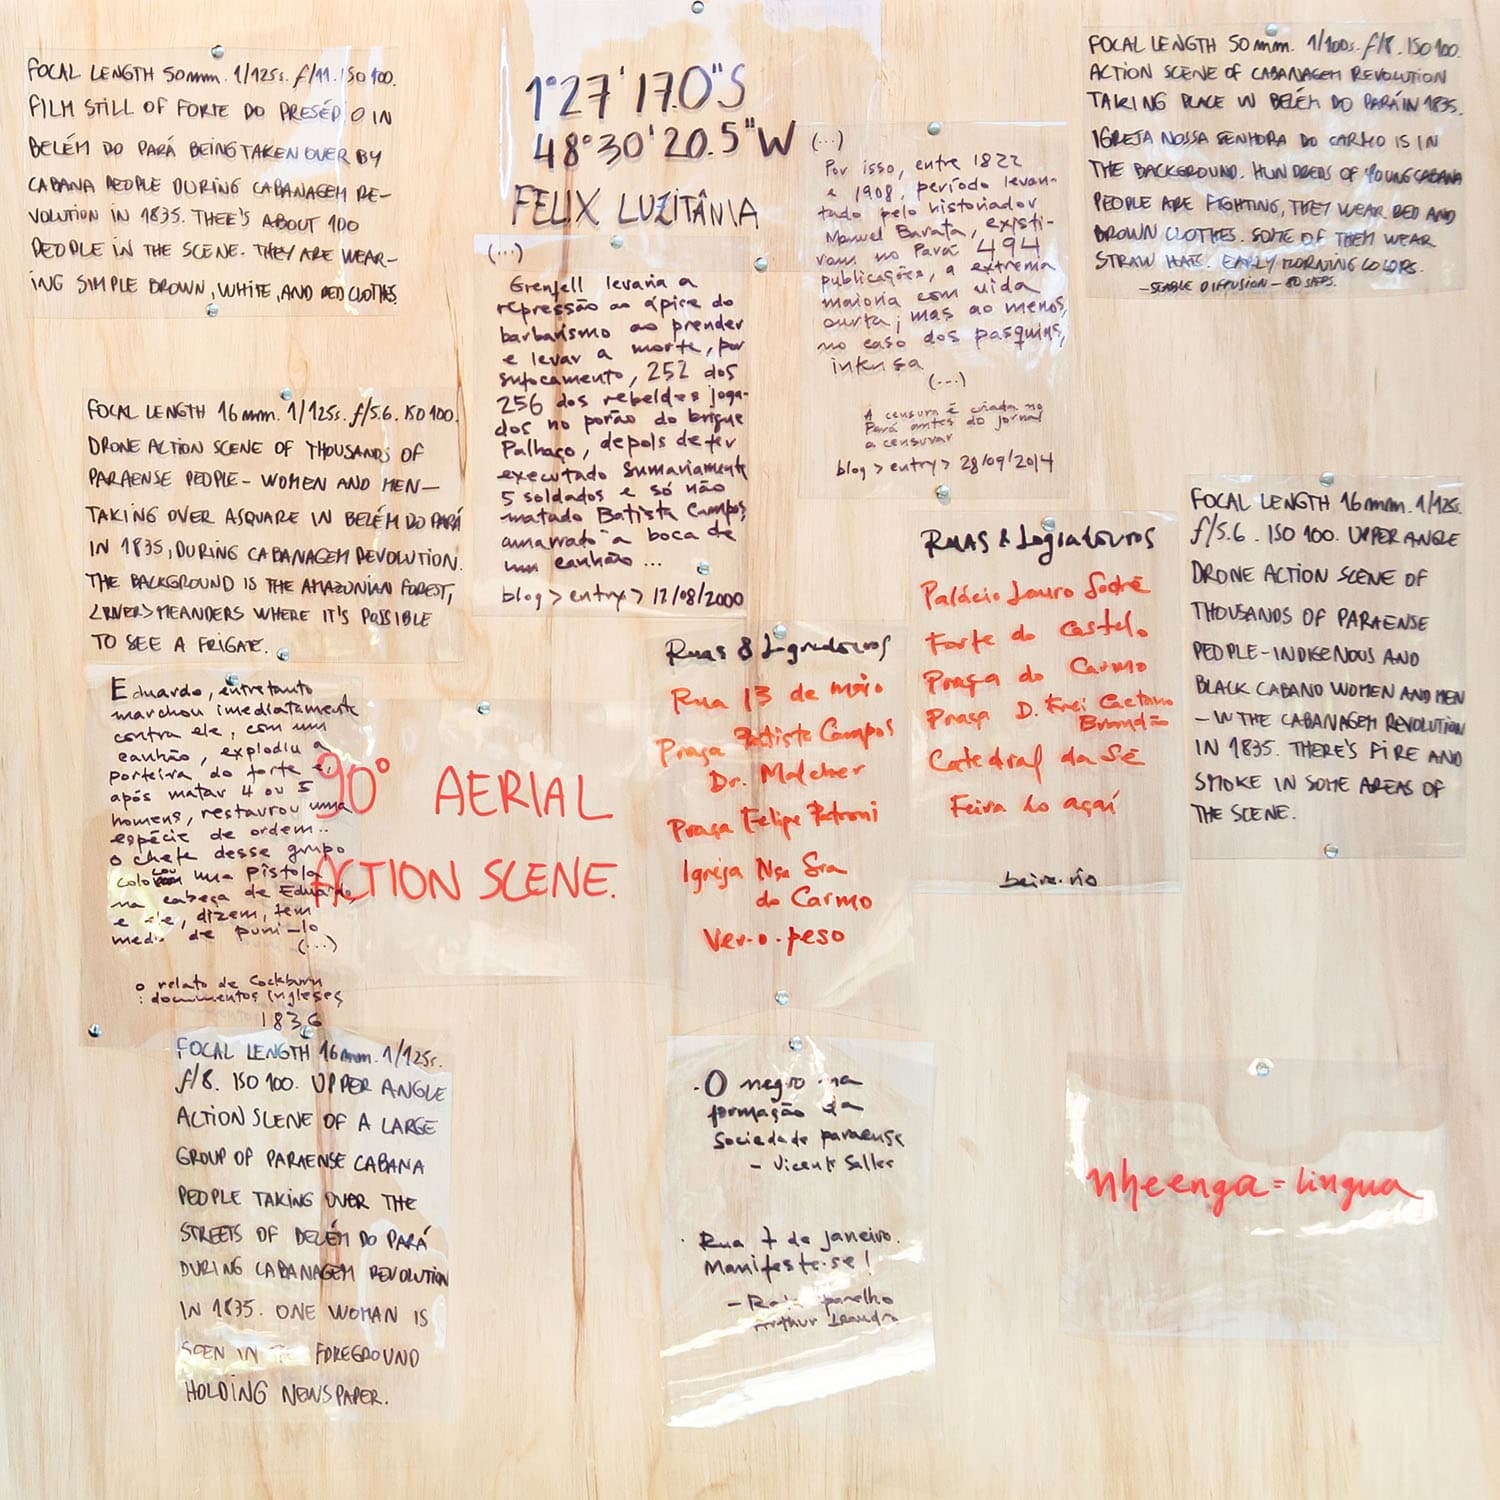 FOCAL LENGTH 50mm. 1/125s. f/11. ISO 100.
FILM STILL OF FORTE DO PRESÉPIO IN
BELÉM DO PARÁ BEING TAKEN OVER BY
CABANA PEOPLE DURING CABANAGEM RE-
VOLUTION IN 1835. THEE'S ABOUT 100
PEOPLE IN THE SCENE. THEY ARE WEAR-
ING SIMPLE BROWN, WHITE, AND RED CLOTHES.
1°27'17.0"S
48°30'20.5"W
FELIX LUZITÂNIA
(...)
Grenfell levaria a
repressão ao ápice do
barbarismo ao prender
e levar a morte, por
sufocamento, 252 dos
256 dos rebeldes joga-
dos no porão do brigue
Palhaço, depois de ter
executado sumariamente
5 soldados e só não
matado Batista Campos,
amarrato a boca de
um canhão ...
blog > entry > 12/08/2000
(...)
Por isso, entre 1822
e 1908, período levan-
tado pelo historiador
Manuel Barata, existi-
ram no Pará 494
publicações, a extrema
maioria com vida
curta; mas ao menos,
no caso dos pasquins,
intensa
(...)
A censura é criada no
Pará antes do jornal
a censurar
blog > entry > 28/09/2014
FOCAL LENGTH 50mm. 1/100s. f/8. ISO 100.
ACTION SCENE OF CABANAGEM REVOLUTION
TAKING PLACE IN BELÉM DO PARÁ IN 1835.
IGREJA NOSSA SENHORA DO CARMO IS IN
THE BACKGROUND. HUNDREDS OF YOUNG CABANA
PEOPLE ARE FIGHTING, THEY WEAR RED AND
BROWN CLOTHES. SOME OF THEM WEAR
STRAW HATS. EARLY MORNING COLORS.
- STABLE DIFFUSION - 80 STEPS.
FOCAL LENGTH 16mm. 1/125s. f/5.6. ISO 100.
DRONE ACTION SCENE OF THOUSANDS OF
PARAENSE PEOPLE - WOMEN AND MEN -
TAKING OVER A SQUARE IN BELÉM DO PARÁ
IN 1835, DURING CABANAGEM REVOLUTION.
THE BACKGROUND IS THE AMAZONIAN FOREST,
<RIVER> MEANDERS WHERE IT'S POSSIBLE
TO SEE A FRIGATE.
Eduardo, entretanto
marchou imediatamente
contra ele, com um
canhão, explodiu a
porteira do forte e,
após matar 4 ou 5
homens, restaurou uma
espécie de ordem...
o chefe desse grupo
colocou uma pistola
na cabeça de Eduardo,
e ele, dizem, tem
medo de puni-lo
(...)
o relato de Cockburn
: documentos ingleses
1836
90° AERIAL
ACTION SCENE.
Ruas & Logradouros
Rua 13 de maio
Praça Batista Campos
Dr. Malcher
Praça Felipe Patroni
Igreja Nsa Sra
do Carmo
Ver-o-peso
Ruas & Logradouros
Palácio Lauro Sodré
Forte do Castelo
Praça do Carmo
Praça D. Frei Caetano
Brandão
Catedral da Sé
Feira do açaí
beira-rio
FOCAL LENGTH 16mm. 1/125s.
f/5.6. ISO 100. UPPER ANGLE
DRONE ACTION SCENE OF
THOUSANDS OF PARAENSE
PEOPLE - INDIGENOUS AND
BLACK CABANO WOMEN AND MEN
- IN THE CABANAGEM REVOLUTION
IN 1835. THERE'S FIRE AND
SMOKE IN SOME AREAS OF
THE SCENE.
FOCAL LENGTH 16mm. 1/125s.
f/8. ISO 100. UPPER ANGLE
ACTION SCENE OF A LARGE
GROUP OF PARAENSE CABANA
PEOPLE TAKING OVER THE
STREETS OF BELÉM DO PARÁ
DURING CABANAGEM REVOLUTION
IN 1835. ONE WOMAN IS
SEEN IN THE FOREGROUND
HOLDING NEWSPAPER.
. O negro na
formação da
sociedade paraense
- Vicente Salles
. Rua 7 de janeiro.
Manifeste-se!
- parelho
Arthur Leandro
nheenga = língua